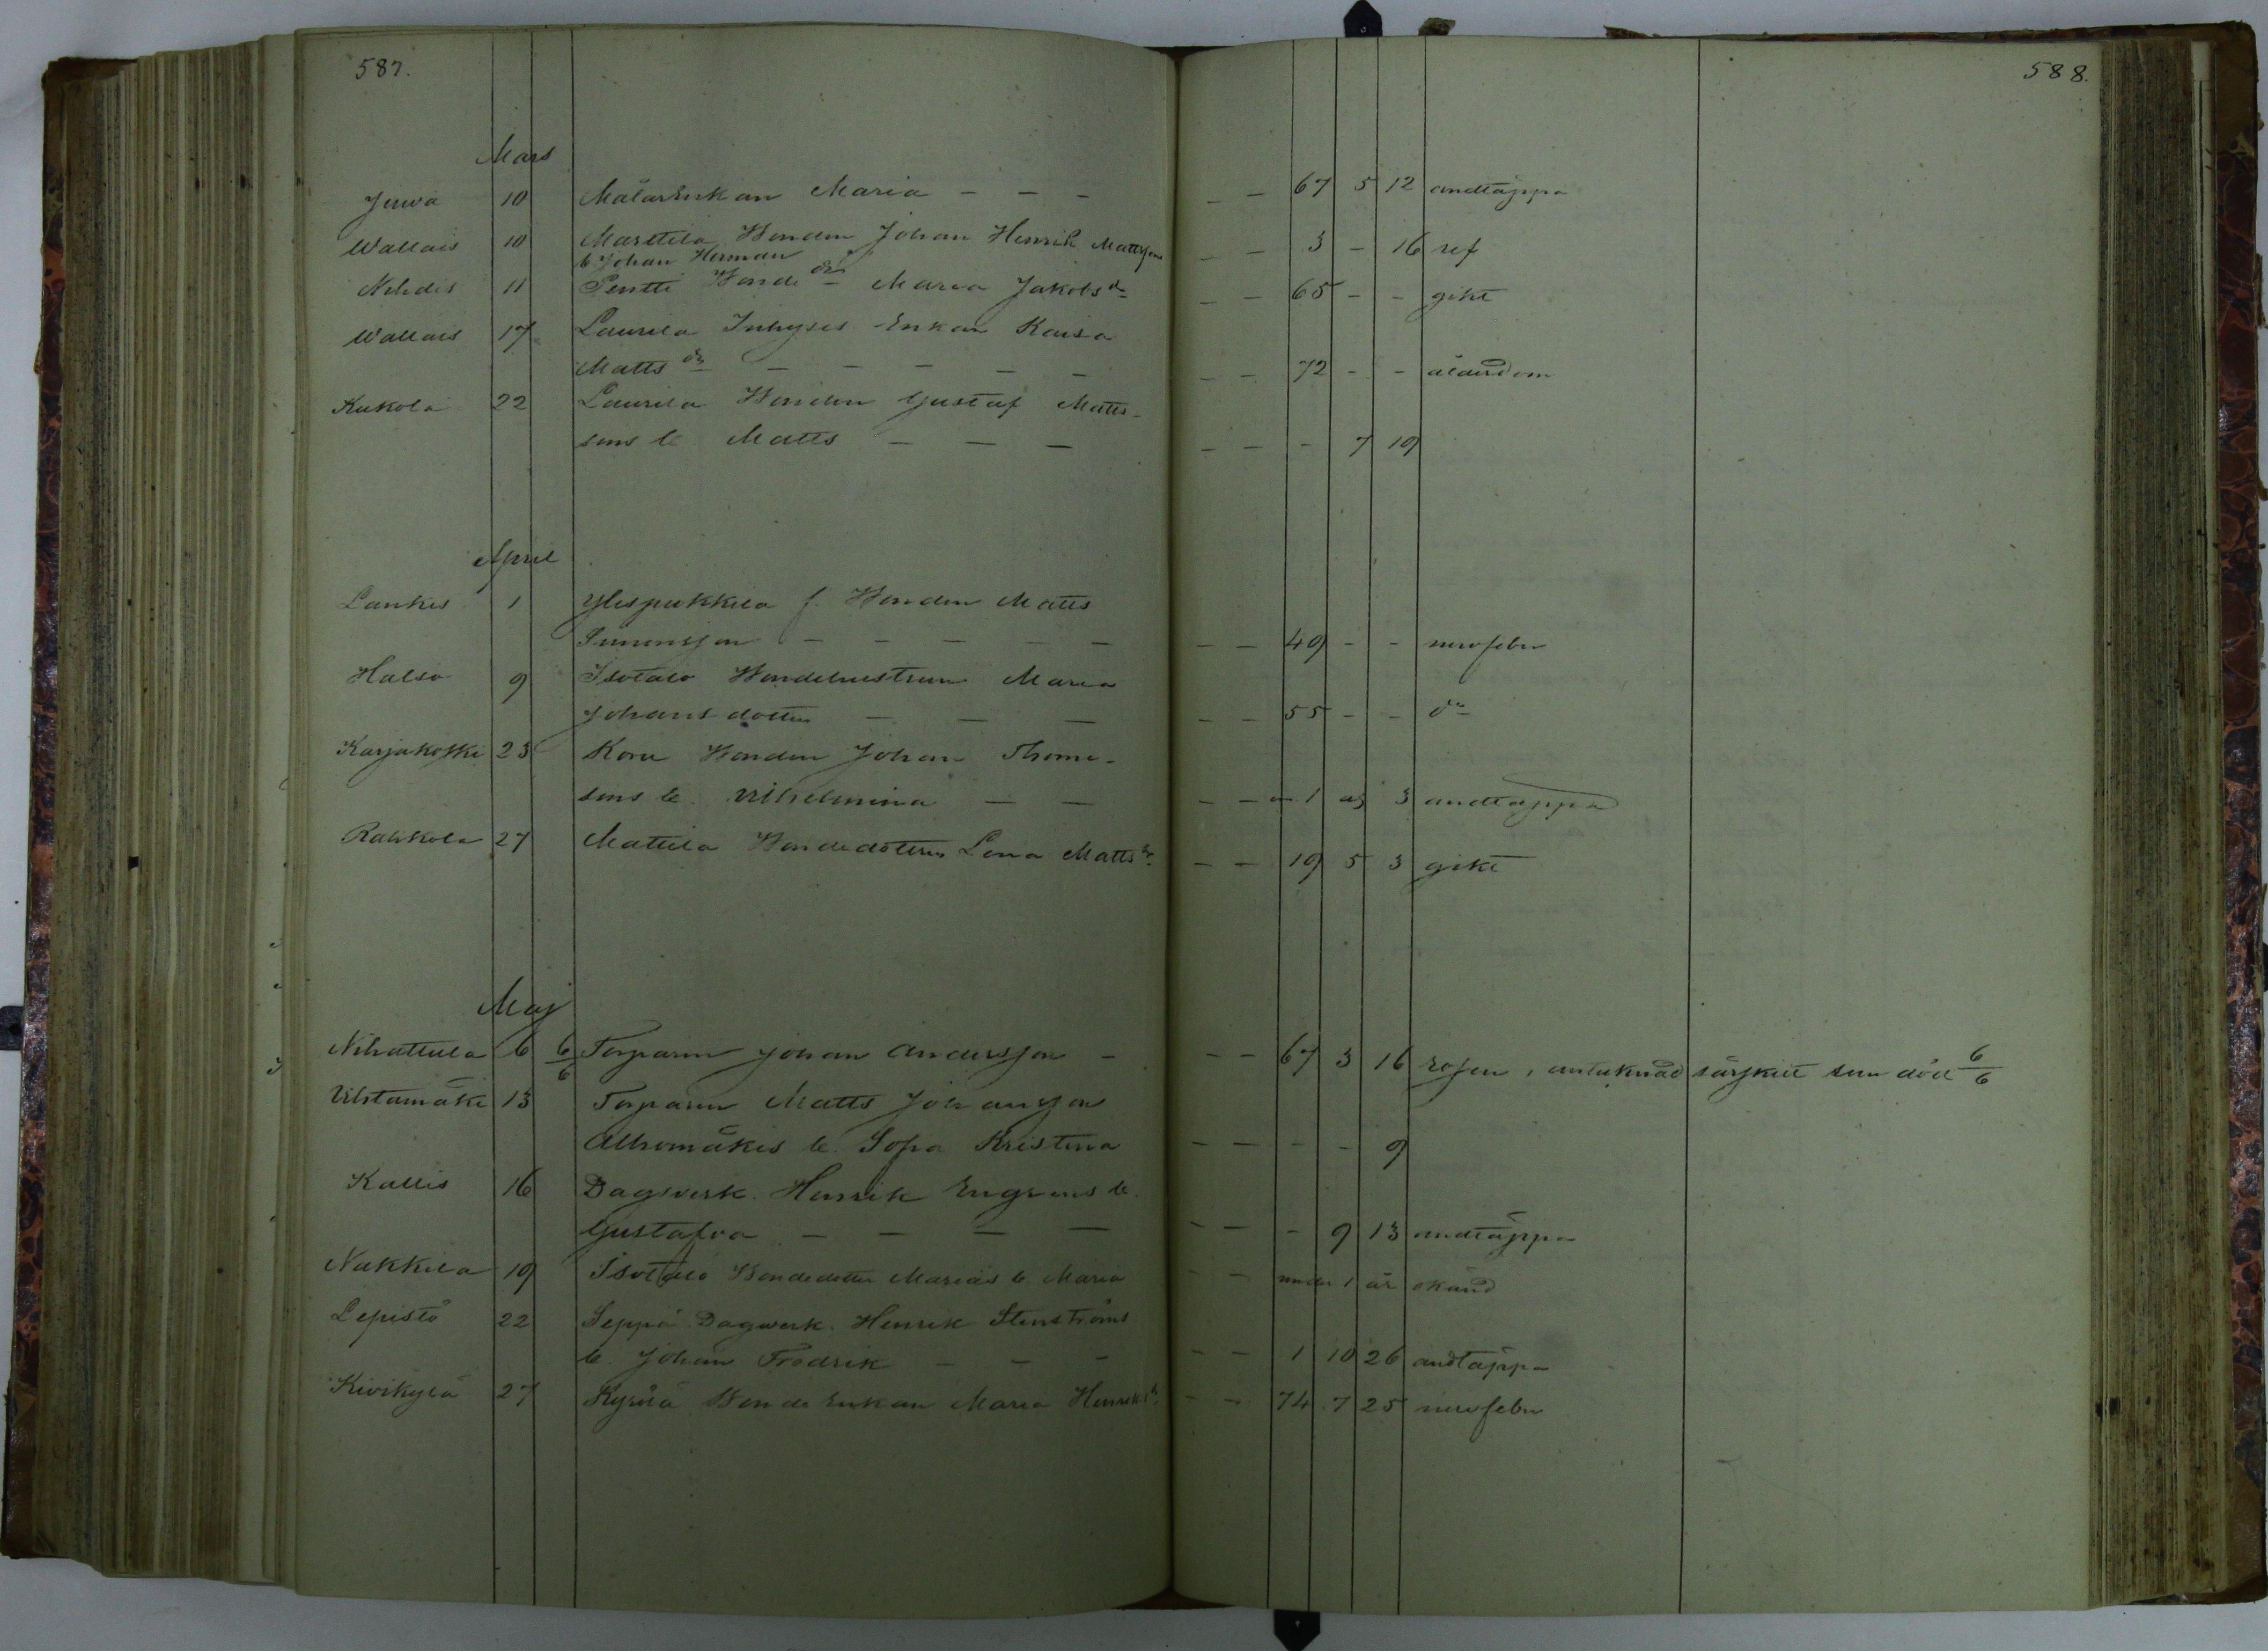 587.
588.
Mars
Juva 10 Målarenkan Maria — — — — — 67 5 12 andtäppa
Wallais 10 Marttila Bonden Johan Henrik Mattssons
b. Johan Herman — — 3 - 16 ref
Nihdis 11 Pentti Bonde dr - Maria Jakobs dr — — 65 - - gikt
Wallais 17 Laurila Inhyses Enkan Kaisa
Matts dr — — — — — — — 72 - - ålderdom
Kukola 22 Laurila Bonden Gustaf Matts-
sons b. Matts — — — — — - 7 19
April
Lankis 1 Ylispukkila f. Bonden Matts
Simonsson — — — — — — — 49 - - nervfeber
Halso 9 Isotalo Bondehustrun Maria
Johansdotter — — — — — 55 - - do
Karjakoski 23 Bonden Johan Thome-
sons b. Vilhelmina — — — — 1 3 andtäppa
Rahkola 27 Mattila Bondedottren Lena Matts dr — — 19 5 3 gikt
Maj
Nihattula 6 6/6 Torparen Johan Andersson — — — 67 3 16 rosen, antecknad särskilt som död 6/6
Vihtamäki 13 Torparen Matts Johansson
Alhomäkis b. Sofia Kristina — — - - 9
Kallis 16 Dagsverk. Henrik Engrens b.
Gustafva — — — — — — - 9 13 andtäppa
Nakkila 19 Isotalo Bondedotter Marias b. Maria — — under 1 år okänd
Lepistö 22 Seppä Dagwerk. Henrik Stenströms
b. Johan Fredrik — — — — — 1 10 26 andtäppa
Kivikylä 27 Bonde Enkan Maria Henriks dr — — 74 7 25 nervfeber